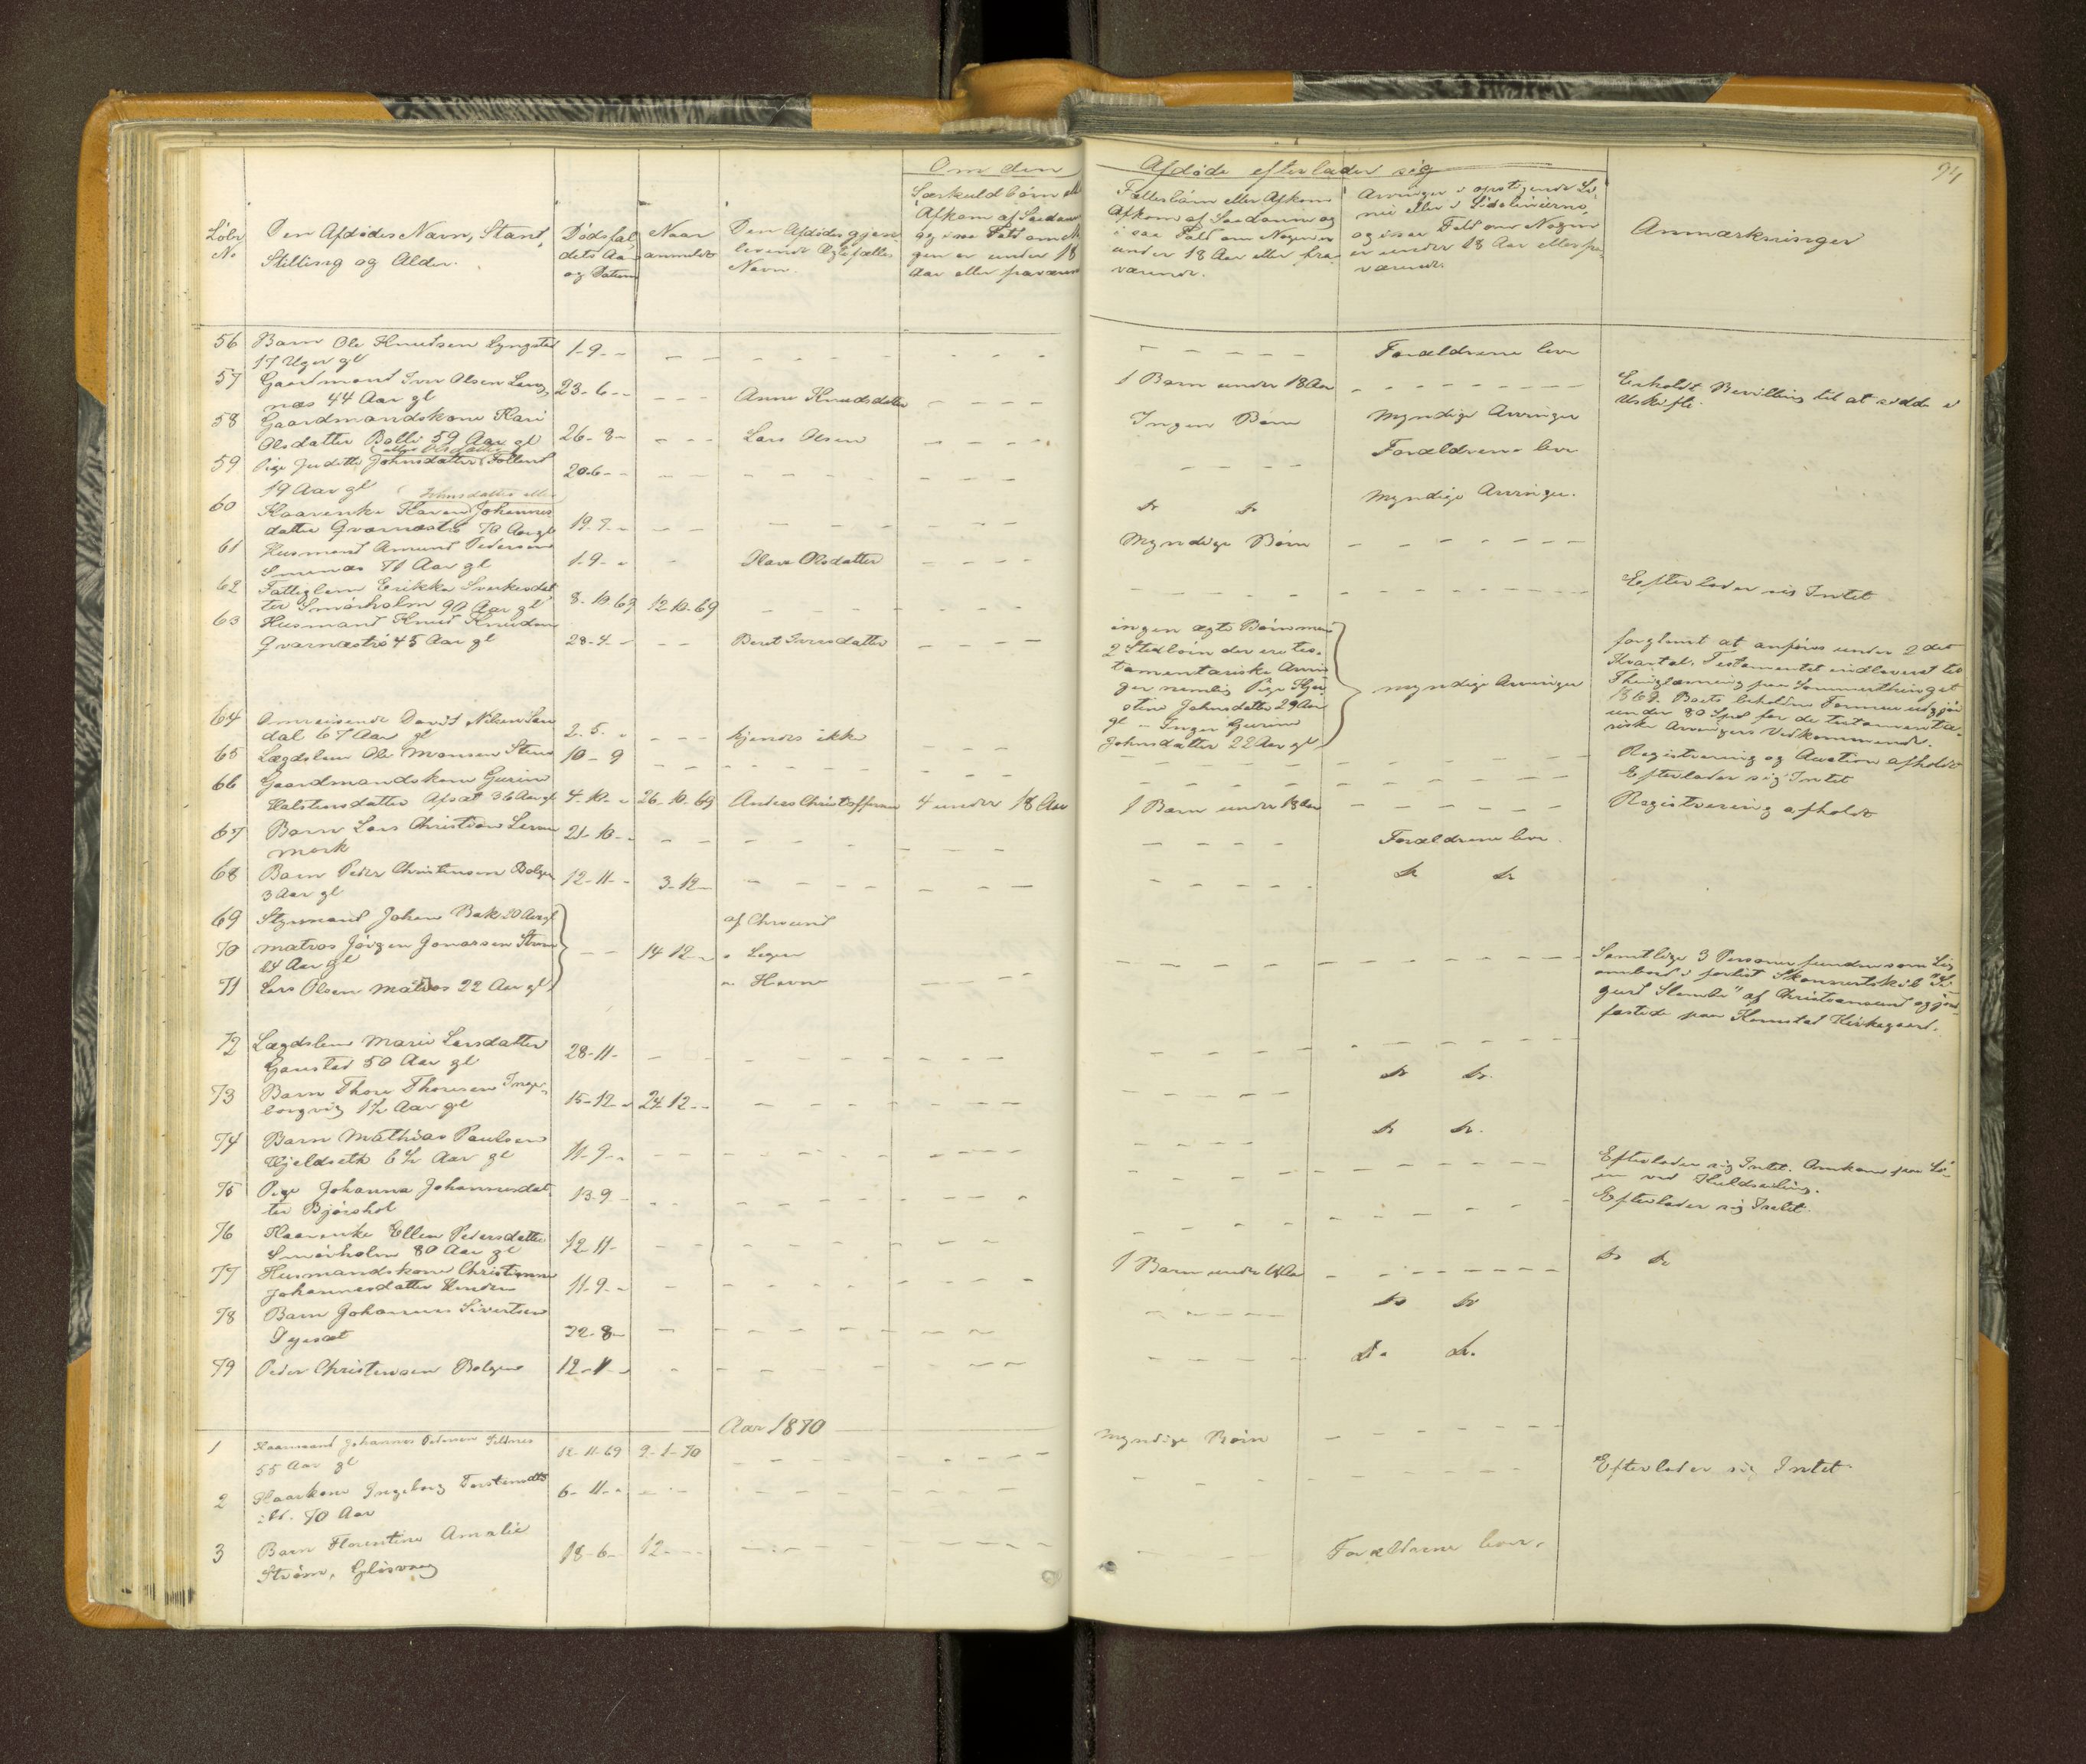 Om den Afdøde efterlader sig
94
Løbe No
Den Afdødes Navn, Stand,
Stilling og Alder.
Dødsfal-
dets Aar
og Datum
Naar
anmeldt
Den Afdødes gjen-
levende Ægtefælles
Navn.
Særkuldbørn ell
Afkom af Saadanne
og i saa Fald om No
gen er under 18
Aar eller fraværende
Fællesbørn eller Afkom
Afkom af Saadanne og
i saa Fald om Nogen er
under 18 Aar eller fra-
værende.
Arvinger i opstigende Li-
nie eller i Sidelinierne,
og i saa Fald om Nogen
er under 18 Aar eller fra-
værende.
Anmærkninger
56 Barn Ole Knudsen Lyngstad 1-9- - Forældrene leve
17 Uger gl
57 Gaardmand Iver Olsen 23-6- - Anne Knudsdatter 1 Barn under 18 Aar Erholdt Bevilling til at sidde i
næs 44 Aar gl Uskifte.
58 Gaardmandskone Kari
Olsdatter Bolli 59 Aar gl 26-8- Lars Olsen Ingen Børn Myndige Arvinger
59 Pige Judithe Johnsdatter (eller Olsdatter) 20-6- - Forældrene leve
19 Aar gl
60 Kaarenke Karen (Johnsdatter eller) Johannes-
datter Qvarnæstrø 70 Aar gl 19-7- - do do Myndige Arvinger.
61 Husmand Amund Pedersen
71 Aar gl 1-9- - Olsdatter Myndige Børn
62 Fattiglem Erikka Sverkesdat-
ter Smørholm 90 Aar gl 8-10-69 12-10-69 Efterlader sig Intet
63 Husmand Knud Knudsen
Qvarnæstrø 45 Aar gl 28-4- - Beret Iversdatter
ingen ægte Børn men
2 Stedbørn der ere tes-
tamentariske Arvin
ger nemlig Pige Kjer-
stine Johnsdatter 29 Aar
gl - Inger Gurine
Johnsdatter 22 Aar gl
myndige Arvinger
forglemt at anføres under 2det
Kvartal. Testamentet indleveret til
Thinglæsning paa Sommerthinget
1869. Boets beholdne Formue udgjør
under 80 Spd for de testamenta-
riske Arvingers Vedkommende.
64 Omreisende David Nilsen
dal 67 Aar gl 2-5- - kjendes ikke Registrering og Auction afholdt
65 Lægdslem Ole Monsen 10-9 Efterlader sig Intet
66 Gaardmandskone Gurine
Halstensdatter 36 Aar gl 4-10- - 26-10-69 Anders Christoffersen 4 under 18 Aar 1 Barn under 18 Aar Registrering afholdt
67 Barn Lars Christian 21-10- - Forældrene leve.
mork
68 Barn Peder Christensen Bolgen 12-11- - 3-12- do do
3 Aar gl
69 Styrmand Johan Bak 30 Aar gl af Chrsund
70 Matros Jørgen Jonassen 14-12- -
24 Aar gl
71 Lars Olsen Matros 22 Aar gl
Samtlige 3 Personer fundne som Lig
ombord i forlist Skonnertskib "Si-
gurd Slembe" af Christiansund og jord-
fæstede paa Kornstad Kirkegaard.
72 Lægdslem Marie Larsdatter
Gaustad 50 Aar gl 28-11-
73 Barn Thore Thoresen Inge-
borgvig 1½ Aar gl 15-12- - 24-12- - do do.
74 Barn Mathias Paulsen
Kjeldseth 6½ Aar gl 11-9- - do do.
75 Pige Johanna Johannesdat-
ter Bjørshol 13-9- Efterlader sig Intet. Omkom paa Sø-
en ved Kuldseiling.
76 Kaarenke Ellen Pedersdatter
Smørholm 80 Aar gl 12-11- Efterlader sig Intet.
77 Husmandskone Christianne
Johannesdatter 11-9- - 1 Barn under do do
78 Barn Johannes Sivertsen
22-8- do do
79 Peder Christensen Bolgen 12-11- - do. do.
Aar 1870
1 Kaarmand Johannes Pedersen 12-11-69 9-1-70 Myndige Børn
55 Aar gl
2 Kaarkone Ingeborg Torstensdtr 6-11- - Efterlader sig Intet
70 Aar
3 Barn Florentine Amalie 18-6- 12 - - Forældrene lever.
Strøm,